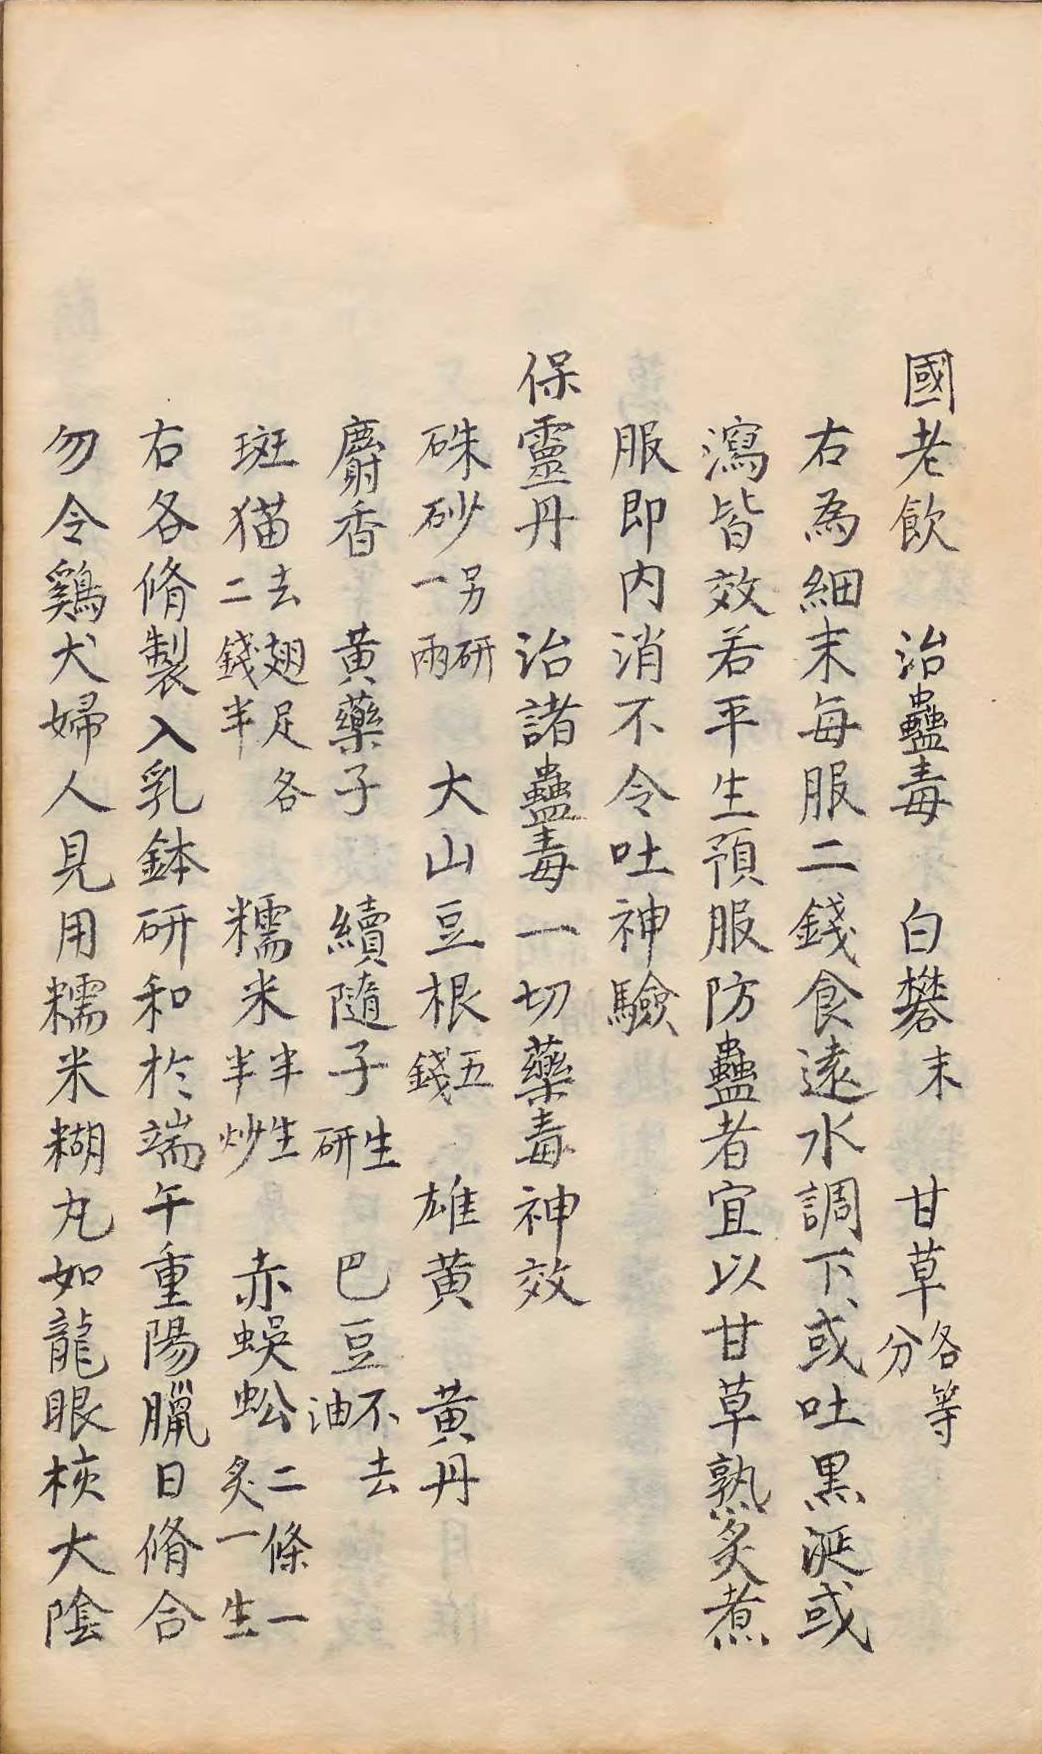 國老飲　治蠱毒　白礬末　甘草各等分
右為細末每服二錢食遠水調下或吐黑涎或
瀉皆效若平生預服防蠱者宜以甘草熟炙煮
服即內消不令吐神驗
保靈丹　治諸蠱毒一切藥毒神效
硃砂另研一兩　大山豆根五錢　雄黃　黃丹
麝香　黃藥子　續隨子生研　巴豆不去油
斑猫去翅足各二錢半　糯米半生半炒　赤蜈蚣二條一炙一生
右各脩製入乳鉢研和於端午重陽臘日脩合
勿令鷄犬婦人見用糯米糊丸如龍眼核大陰